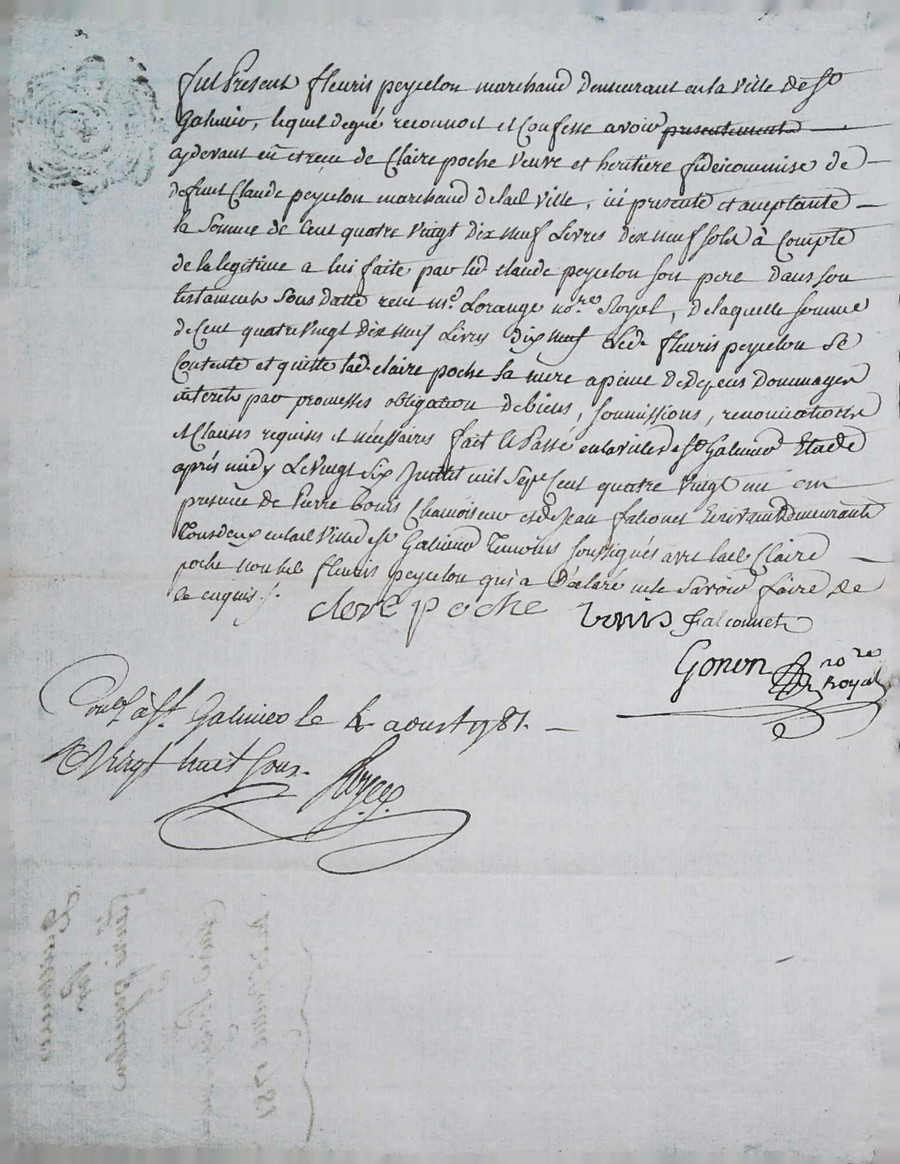 fut Present fleuris peycelon marchand demeurant en la ville de st
Galmier, lequel de gré reconnoit et Confesse avoir presentement
cy devant eu et reçu de Claire poche veuve et heritiere fideicommise de
defunt Claude peycelon marchand de lad ville, ici presente et acceptante
la Somme de Cent quatre vingt dix neuf Livres dix neuf sols à Compte
de la legitime a lui faite par led. Claude peycelon son pere dans son
testament Sous datte reçu me. Lorange nore. Royal, de laquelle somme
de Cent quatre vingt dix neuf Livres dix neuf s led. fleuris peycelon se
Contente et quitte lad. claire poche sa mere a peine de depens dommages
interets par promesses obligation de biens, soumissions, renonciations
et Clauses requises et nécessaires fait et Passé en la ville de st Galmier Etude
après midy Le vingt Six Juillet mil Sept Cent quatre vingt un en
presence de Pierre bouis Chamoiseur et de Jean falconet Ecrivant demeurants
Tous deux en lad ville de st Galmier Temoins soussignés avec lad Claire
poche non led fleuris peycelon qui a déclaré ne le savoir faire de
ce enquis ./.
clere poche bouis falconnet
Gonon nore
Royal
Conlé à St. Galmier le 4 aoust 1781.
R vingt huit sous.